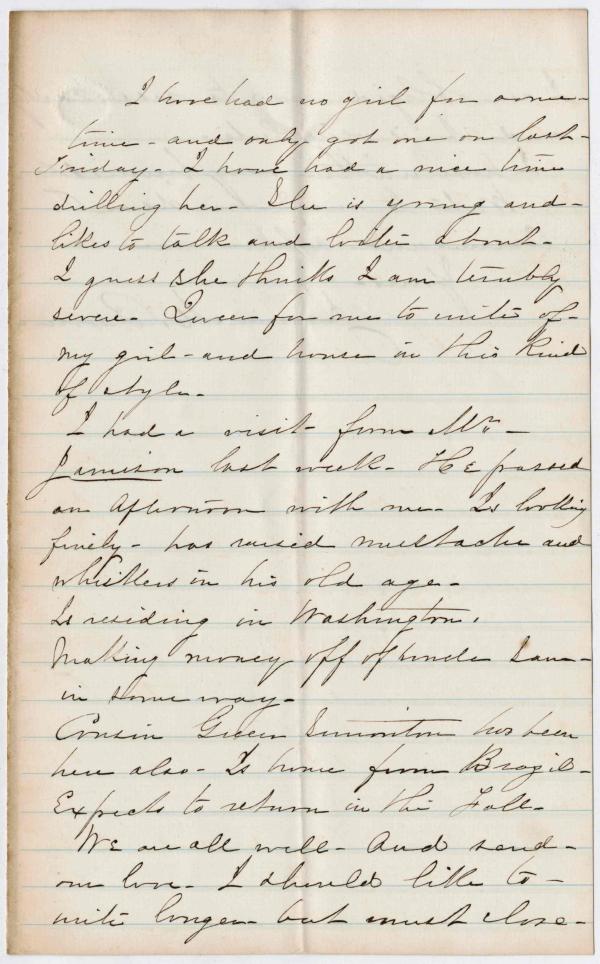 I have had no girl for some-
time - and only got one on last-
Friday - I have had a nice time
drilling her - She is young and -
likes to talk and loiter about -
I guess she thinks I am terribly
severe - Queer for me to write of -
my girl - and house in this kind
of style -
I had a visit from Mr. -
Jamison last week - He passed
an afternoon with me - Is looking
finely - has raised mustache and
whiskers in his old age -
Is residing in Washington.
Making money off of Uncle Sam -
in some way -
Cousin Green Simonton has been
here also - Is home from Brazil -
Expects to return in the Fall -
We are all well - And send -
our love - I should like to -
write longer - but must close -